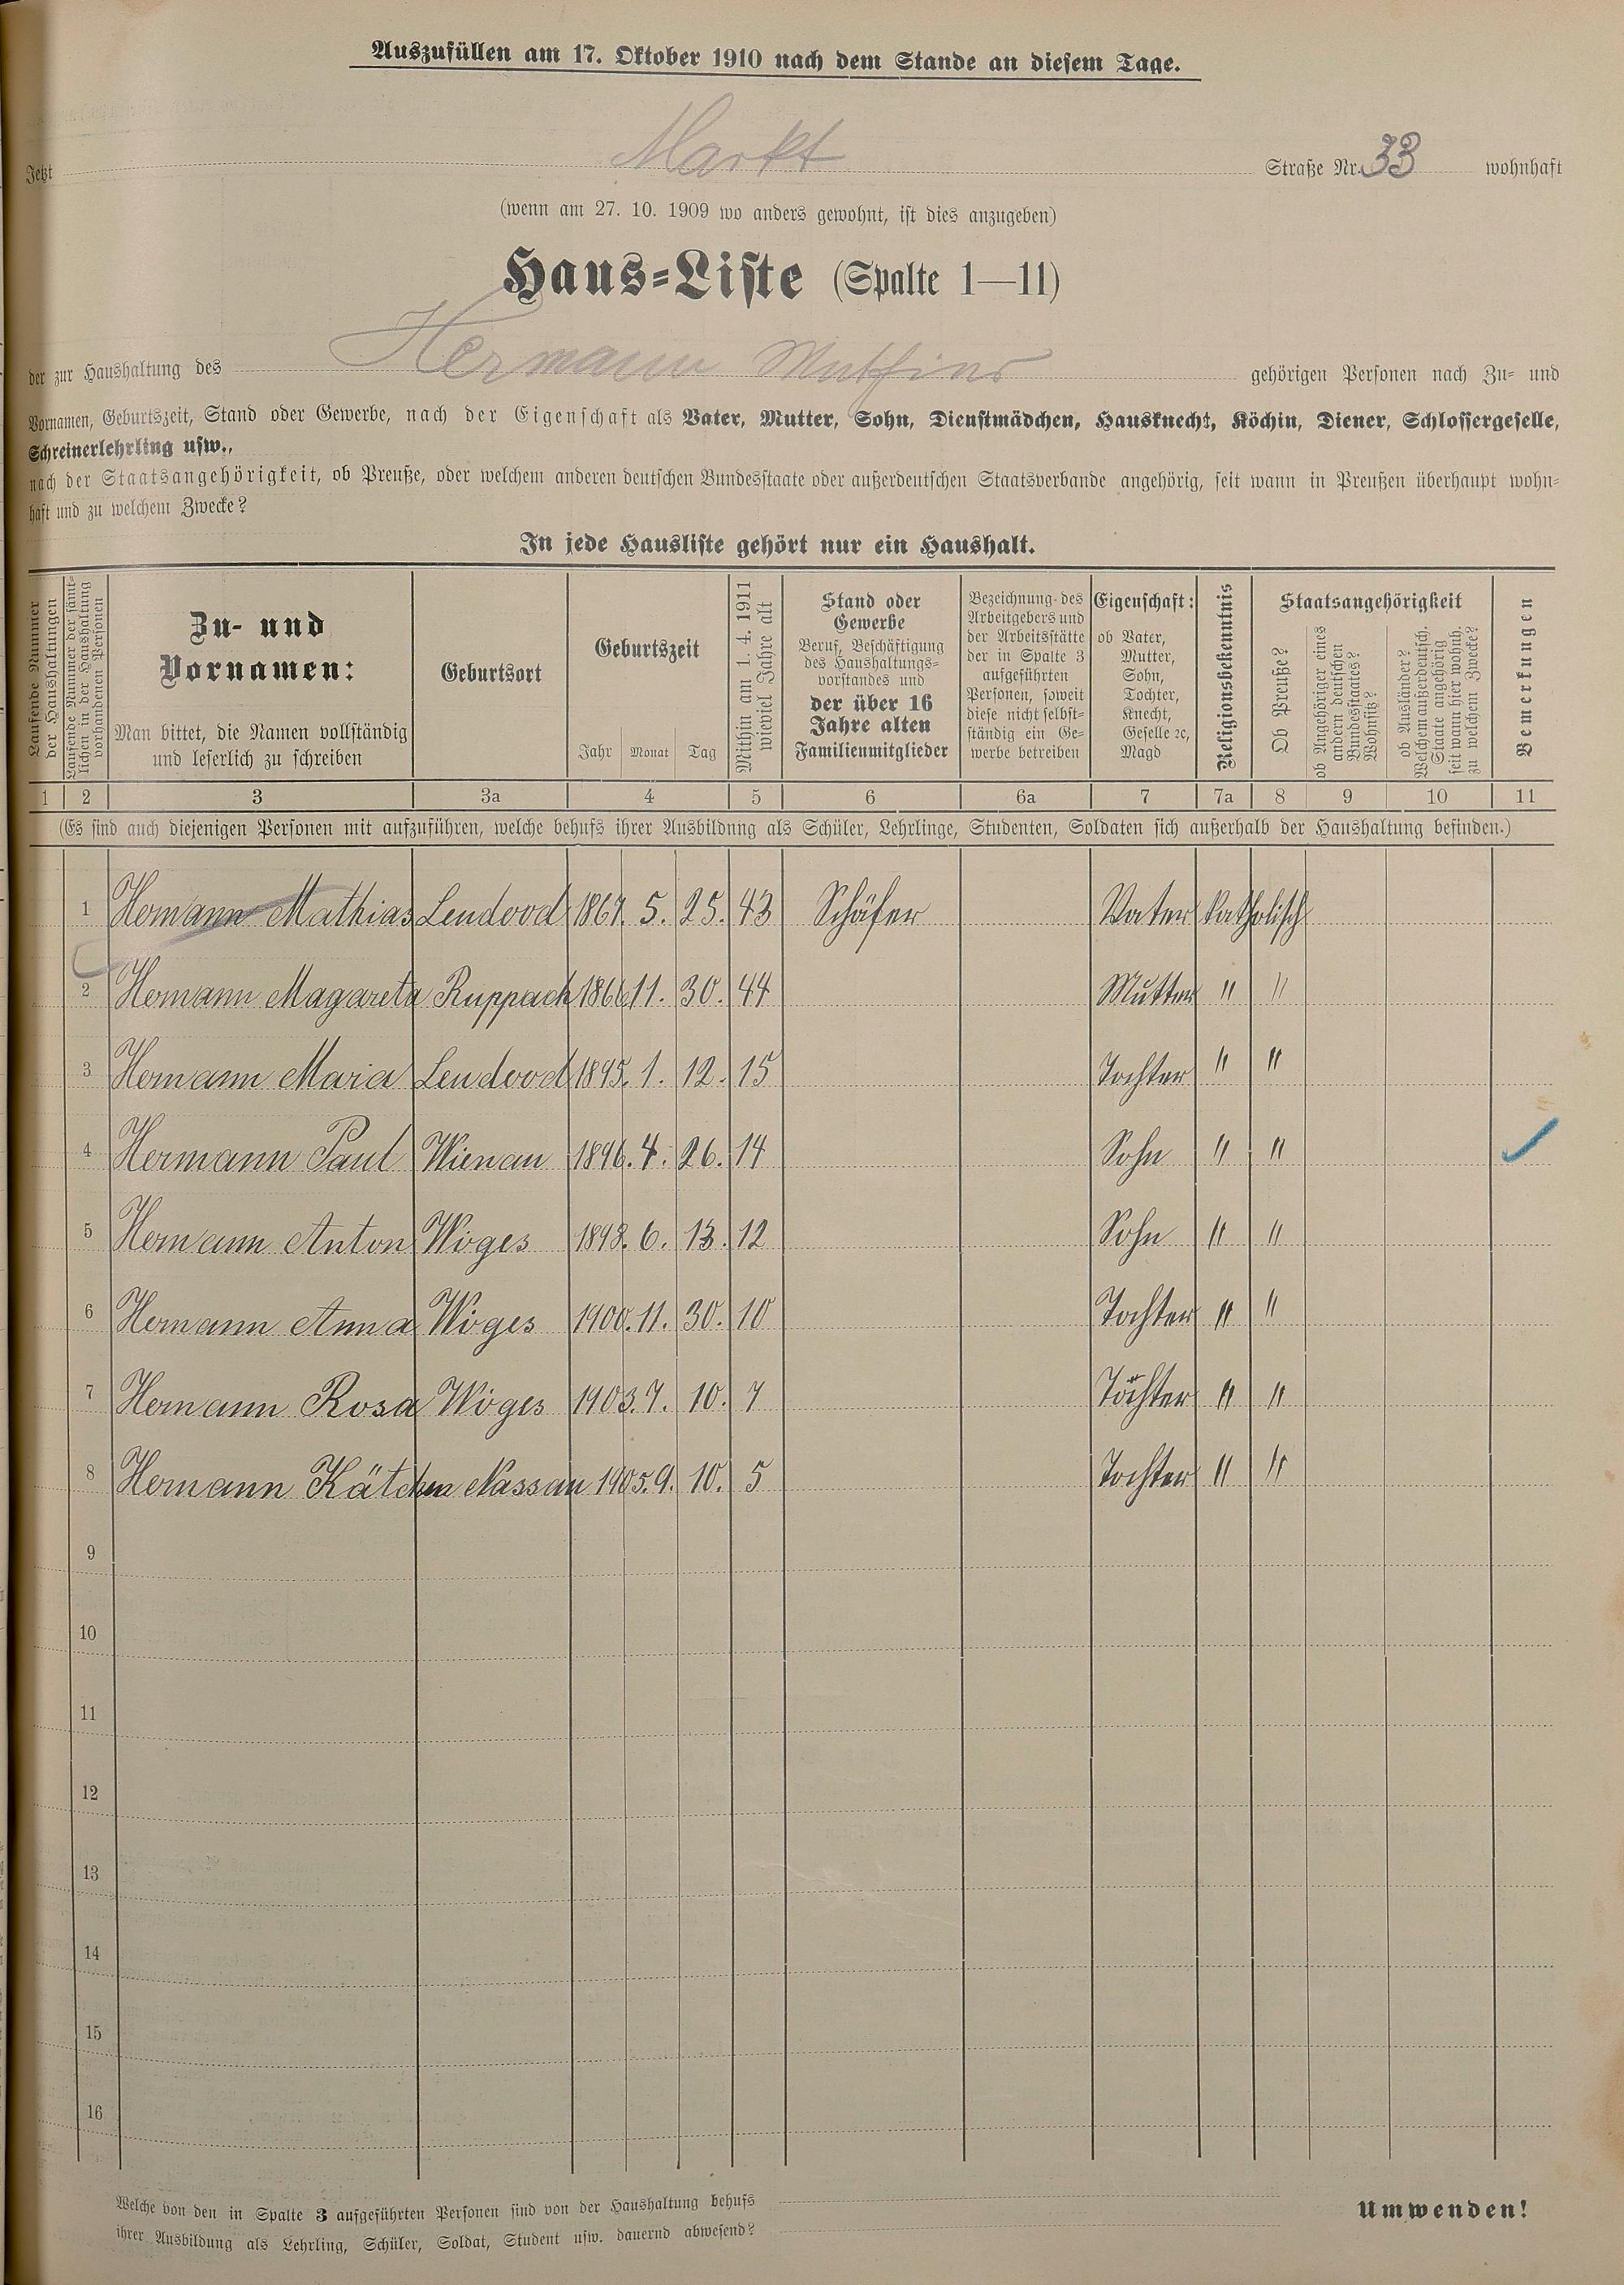 Auszufüllen am 17. Oktober 1910 nach dem Stande an diesem Tage.
Jetzt Markt Straße Nr. 33 wohnhaft
(wenn am 27. 10. 1909 wo anders gewohnt, ist dies anzugeben)
Haus-Liste (Spalte 1—11)
der zur Haushaltung des Hermann Mathias gehörigen Personen nach Zu- und
Vornamen, Geburtszeit, Stand oder Gewerbe, nach der Eigenschaft als Vater, Mutter, Sohn, Dienstmädchen, Hausknecht, Köchin, Diener, Schlossergeselle,
Schreinerlehrling usw.,
nach der Staatsangehörigkeit, ob Preuße, oder welchem anderen deutschen Bundesstaate oder außerdeutschen Staatsverbande angehörig, seit wann in Preußen überhaupt wohn-
haft und zu welchem Zwecke?
In jede Hausliste gehört nur ein Haushalt.
Laufende Nummer
der Haushaltungen
Laufende Nummer der sämt-
lichen in der Haushaltung
vorhandenen Personen
Zu- und
Vornamen:
Man bittet, die Namen vollständig
und leserlich zu schreiben
Geburtsort
Geburtszeit
Jahr Monat Tag
Mithin am 1. 4. 1911
wieviel Jahre alt
Stand oder
Gewerbe
Beruf, Beschäftigung
des Haushaltungs-
vorstandes und
der über 16
Jahre alten
Familienmitglieder
Bezeichnung des
Arbeitgebers und
der Arbeitsstätte
der in Spalte 3
aufgeführten
Personen, soweit
diese nicht selbst-
ständig ein Ge-
werbe betreiben
Eigenschaft:
ob Vater,
Mutter,
Sohn,
Tochter,
Knecht,
Geselle ꝛc,
Magd
Religionsbekenntnis
Staatsangehörigkeit
Ob Preuße?
ob Angehöriger eines
andern deutschen
Bundesstaates?
Wohnsitz?
ob Ausländer?
Welchem außerdeutsch.
Staate angehörig
seit wann hier wohnh.
zu welchem Zwecke?
Bemerkungen
1 2 3 3a 4 5 6 6a 7 7a 8 9 10 11
(Es sind auch diejenigen Personen mit aufzuführen, welche behufs ihrer Ausbildung als Schüler, Lehrlinge, Studenten, Soldaten sich außerhalb der Haushaltung befinden.)
1 Hemann Mathias 1867. 5. 25. 43 Schäfer Vater katholisch
2 Hemann Magareta Ruppach 1866 11. 30. 44 Mutter " "
3 Hemann Maria 1895. 1. 12. 15 Tochter " "
4 Hermann Paul Wienau 1896. 4. 26. 14 Sohn " "
5 Hemann Anton Wirges 1898. 6. 13. 12 Sohn " "
6 Hemann Anna Wirges 1900. 11. 30. 10 Tochter " "
7 Hemann Rosa Wirges 1903. 7. 10. 7 Tochter " "
8 Hemann Kätchen Nassau 1905. 9. 10. 5 Tochter " "
9
10
11
12
13
14
15
16
Welche von den in Spalte 3 aufgeführten Personen sind von der Haushaltung behufs
ihrer Ausbildung als Lehrling, Schüler, Soldat, Student usw. dauernd abwesend?
Umwenden!